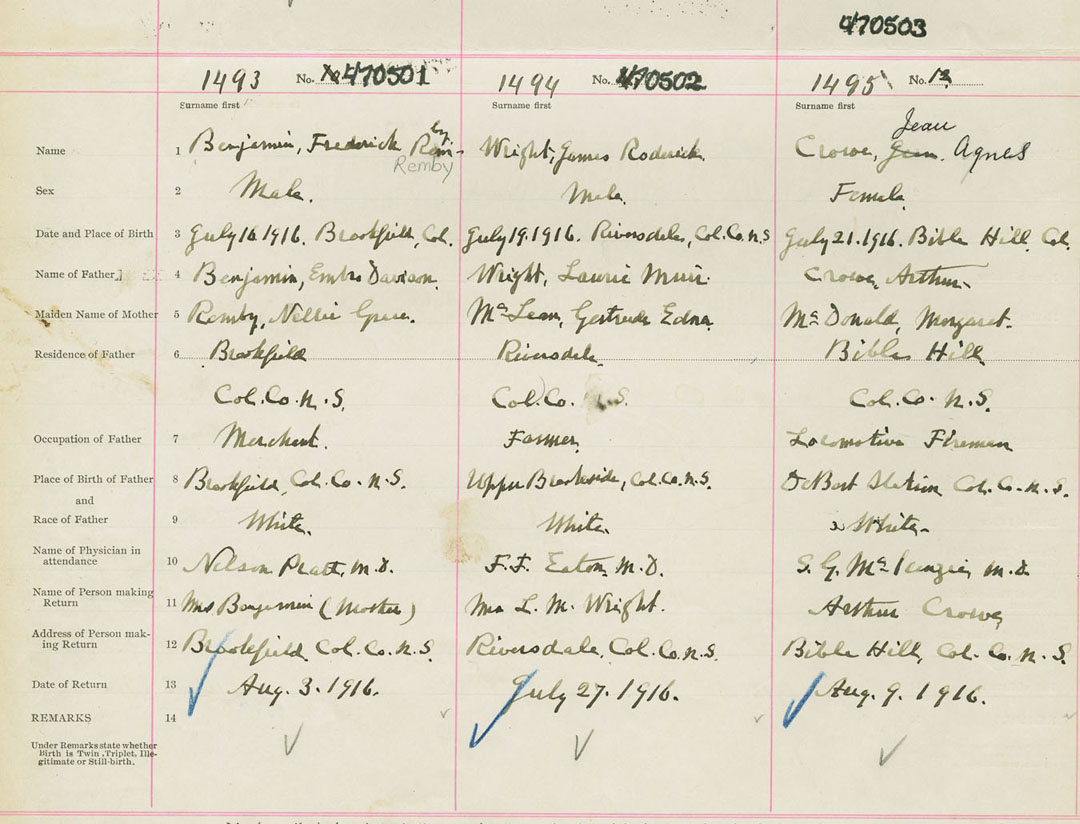 470503
1493 No. 470501 1494 No. 470502 1495 No. 12
Surname first Surname first Surname first
Jean
by
Name 1 Benjamin, Frederick Rem- Wright, James Roderick Crowe, Agnes
Remby
Sex 2 Male. Male. Female
Date and Place of Birth 3 July 16 1916. Brookfield, Col. July 19. 1916. Riversdale, Col. Co. N.S July 21. 1916. Bible Hill, Col.
Name of Father 4 Benjamin, Davison Wright, Laurie Muir. Crowe, Arthur
Maiden Name of Mother 5 Remby, Nellie Grace. McLean, Gertrude Edna McDonald, Margaret.
Residence of Father 6 Brookfield Riversdale Bible Hill
Col. Co. N. S. Col. Co. N.S. Col. Co. N.S.
Occupation of Father 7 Merchant. Farmer Locomotive Fireman
Place of Birth of Father 8 Brookfield, Col. Co. N.S. Upper Brookside, Col. Co. N.S. DeBert Station Col. Co. N.S.
and
Race of Father 9 White. White. White
Name of Physician in
attendance 10 Nelson Pratt, M.D. F.F. Eaton, M.D. S. G. McKenzie, M.D
Name of Person making
Return 11 Mrs Benjamin (Mother) Mrs L. M. Wright. Arthur Crowe,
Address of Person mak-
ing Return 12 Brookfield Col. Co. N.S. Riversdale, Col. Co. N.S. Bible Hill, Col. Co. N.S.
Date of Return 13 Aug. 3. 1916. July 27. 1916. Aug. 9. 1916.
REMARKS 14
Under Remarks state whether
Birth is Twin, Triplet, Ille-
gitimate or Still-birth.